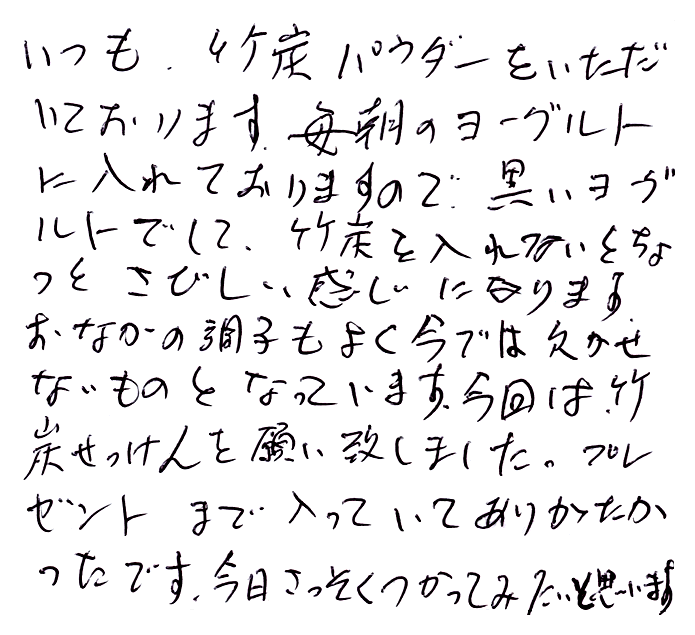 いつも、竹炭パウダーをいただ
いております。毎朝のヨーグルト
に入れておりますので、黒いヨーグ
ルトでして、竹炭を入れないとちょ
っとさびしい感じになります。
おなかの調子もよく今では欠かせ
ないものとなっています。今回は、竹
炭せっけんを願い致しました。プレ
ゼントまで入っていてありがたか
ったです。今日さっそくつかってみたいと思います